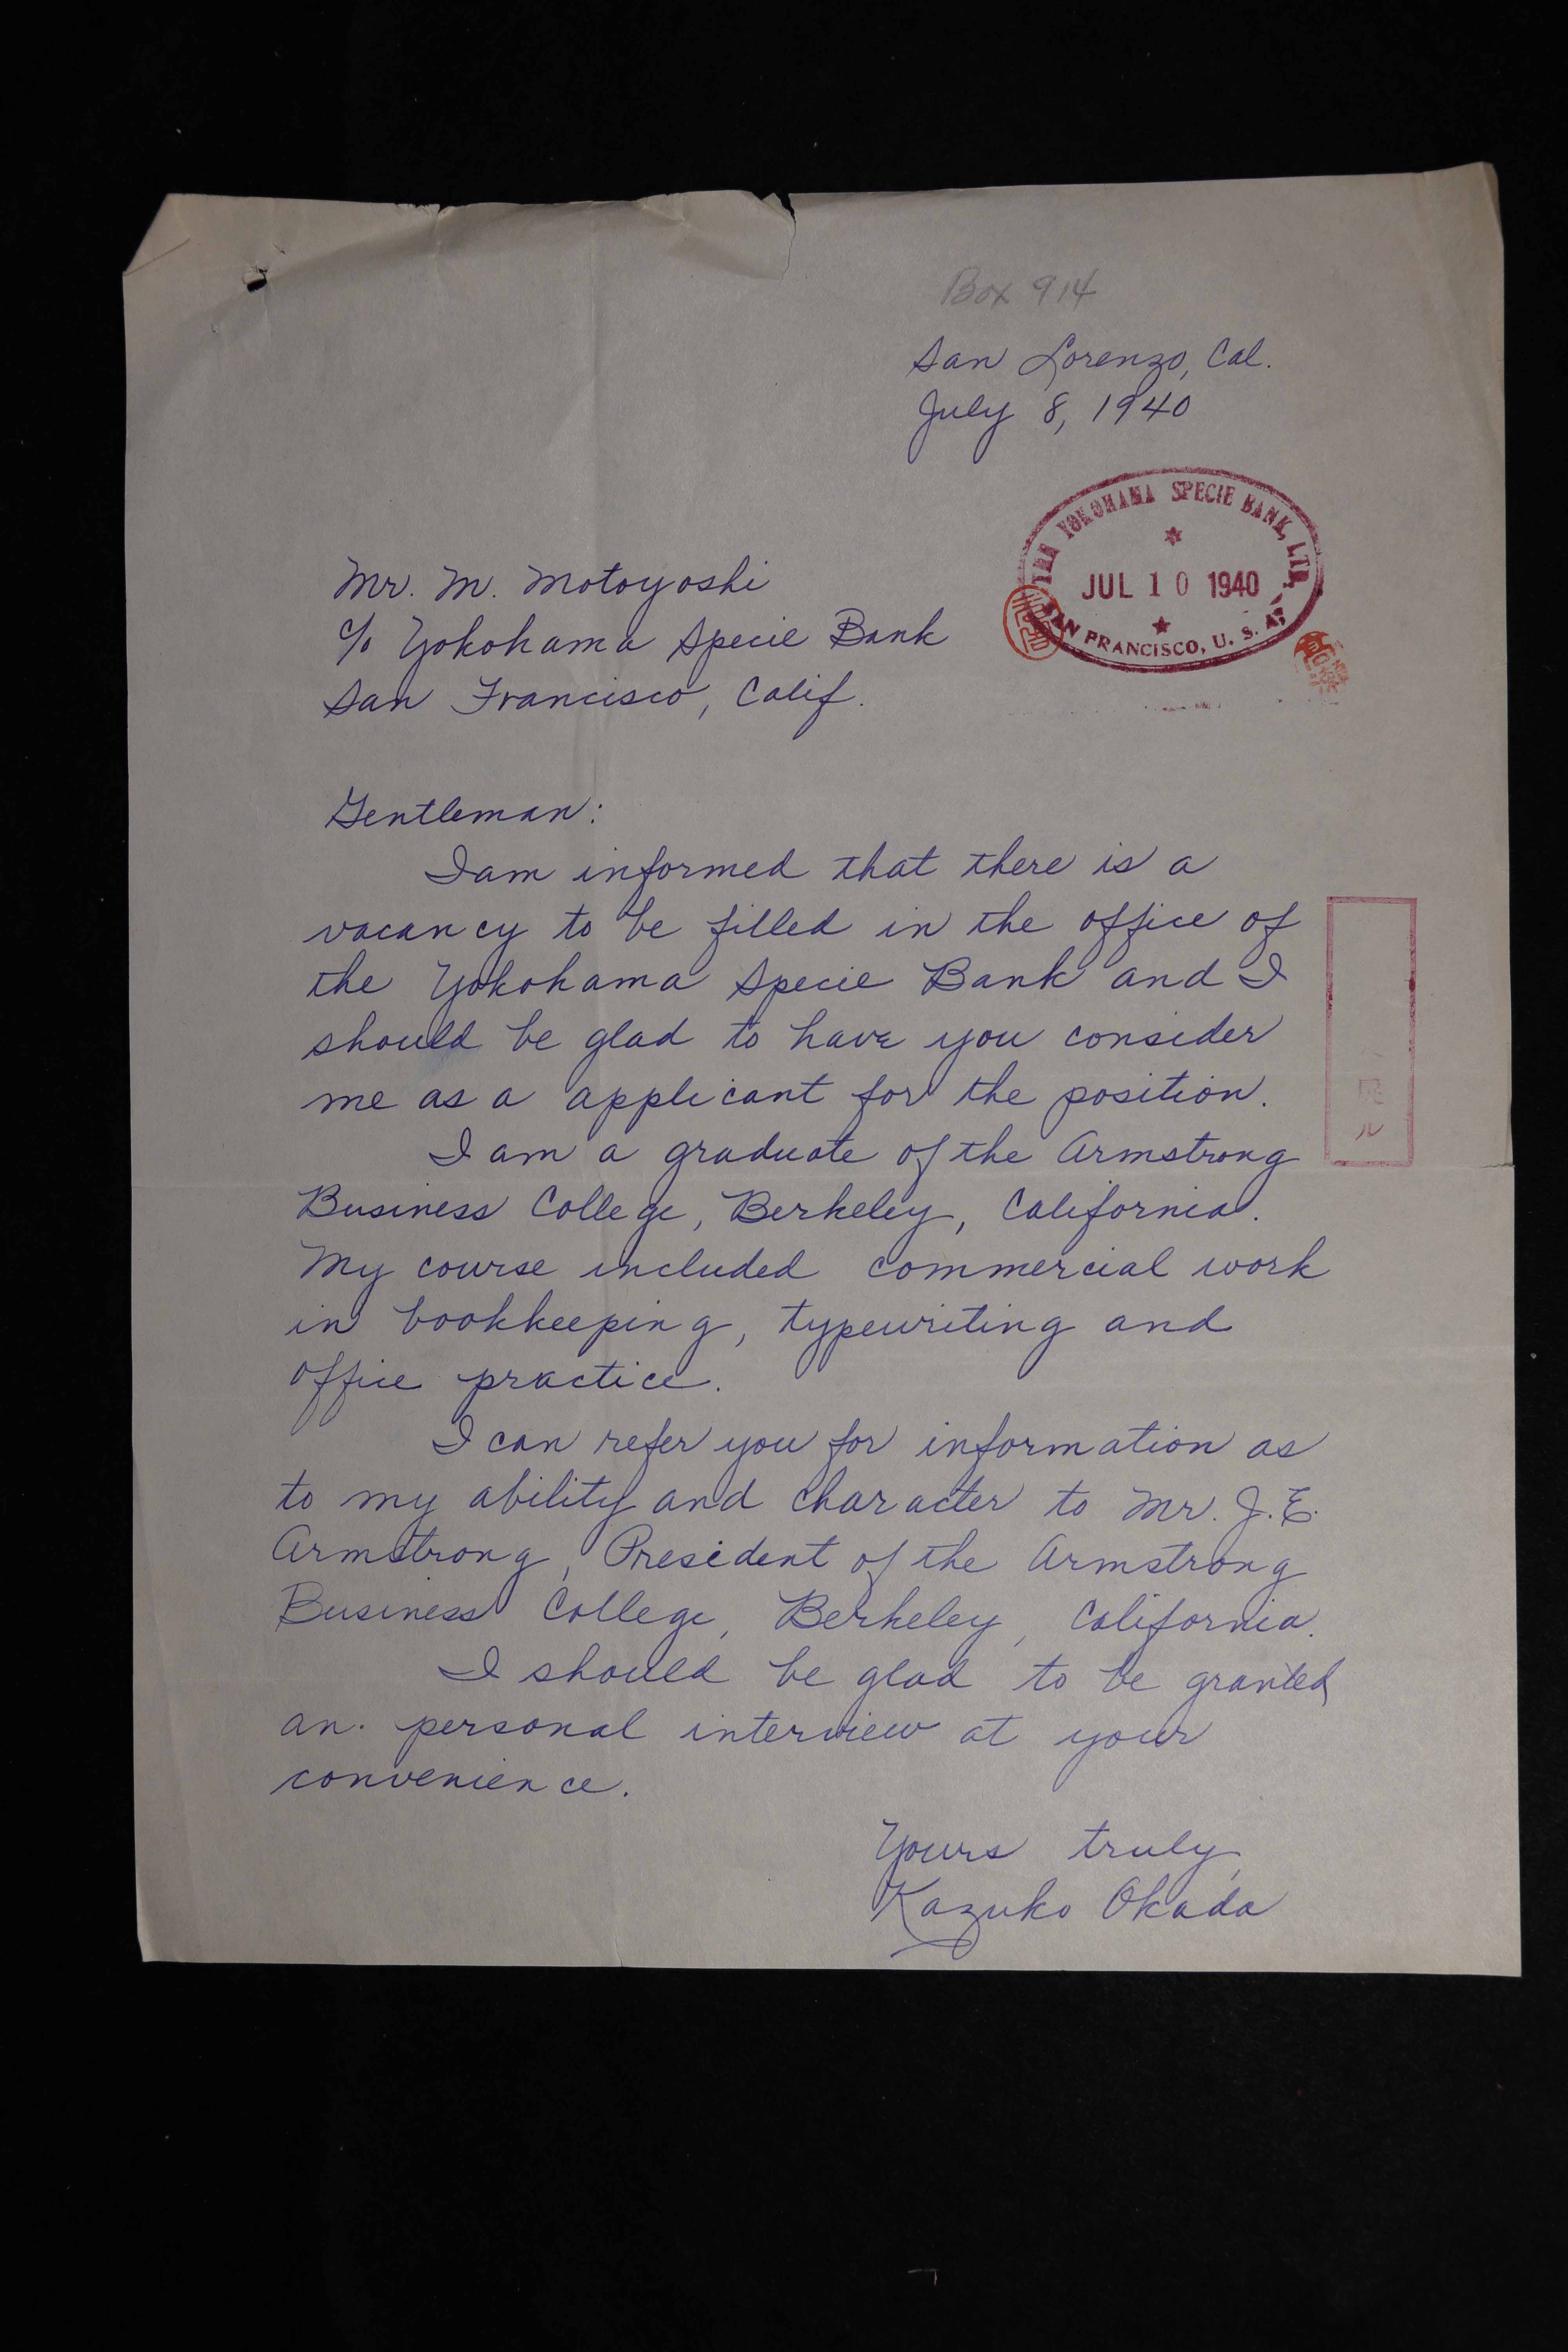 Box 914
San Lorenzo, Cal.
July 8, 1940
THE YOKOHAMA SPECIE BANK, LTD.
JUL 10 1940
SAN FRANCISCO, U. S. A.
Mr. M. Motoyoshi
c/o Yokohama Specie Bank
San Francisco, Calif.
Gentleman:
I am informed that there is a
vacancy to be filled in the office of
the Yokohama Specie Bank and I
should be glad to have you consider
me as a applicant for the position.
I am a graduate of the Armstrong
Business College, Berkeley, California.
My course included commercial work
in bookkeeping, typewriting and
office practice.
I can refer you for information as
to my ability and character to Mr. J. E.
Armstrong, President of the Armstrong
Business College, Berkeley, California.
I should be glad to be granted
an personal interview at your
convenience.
Yours truly,
Kazuko Okada